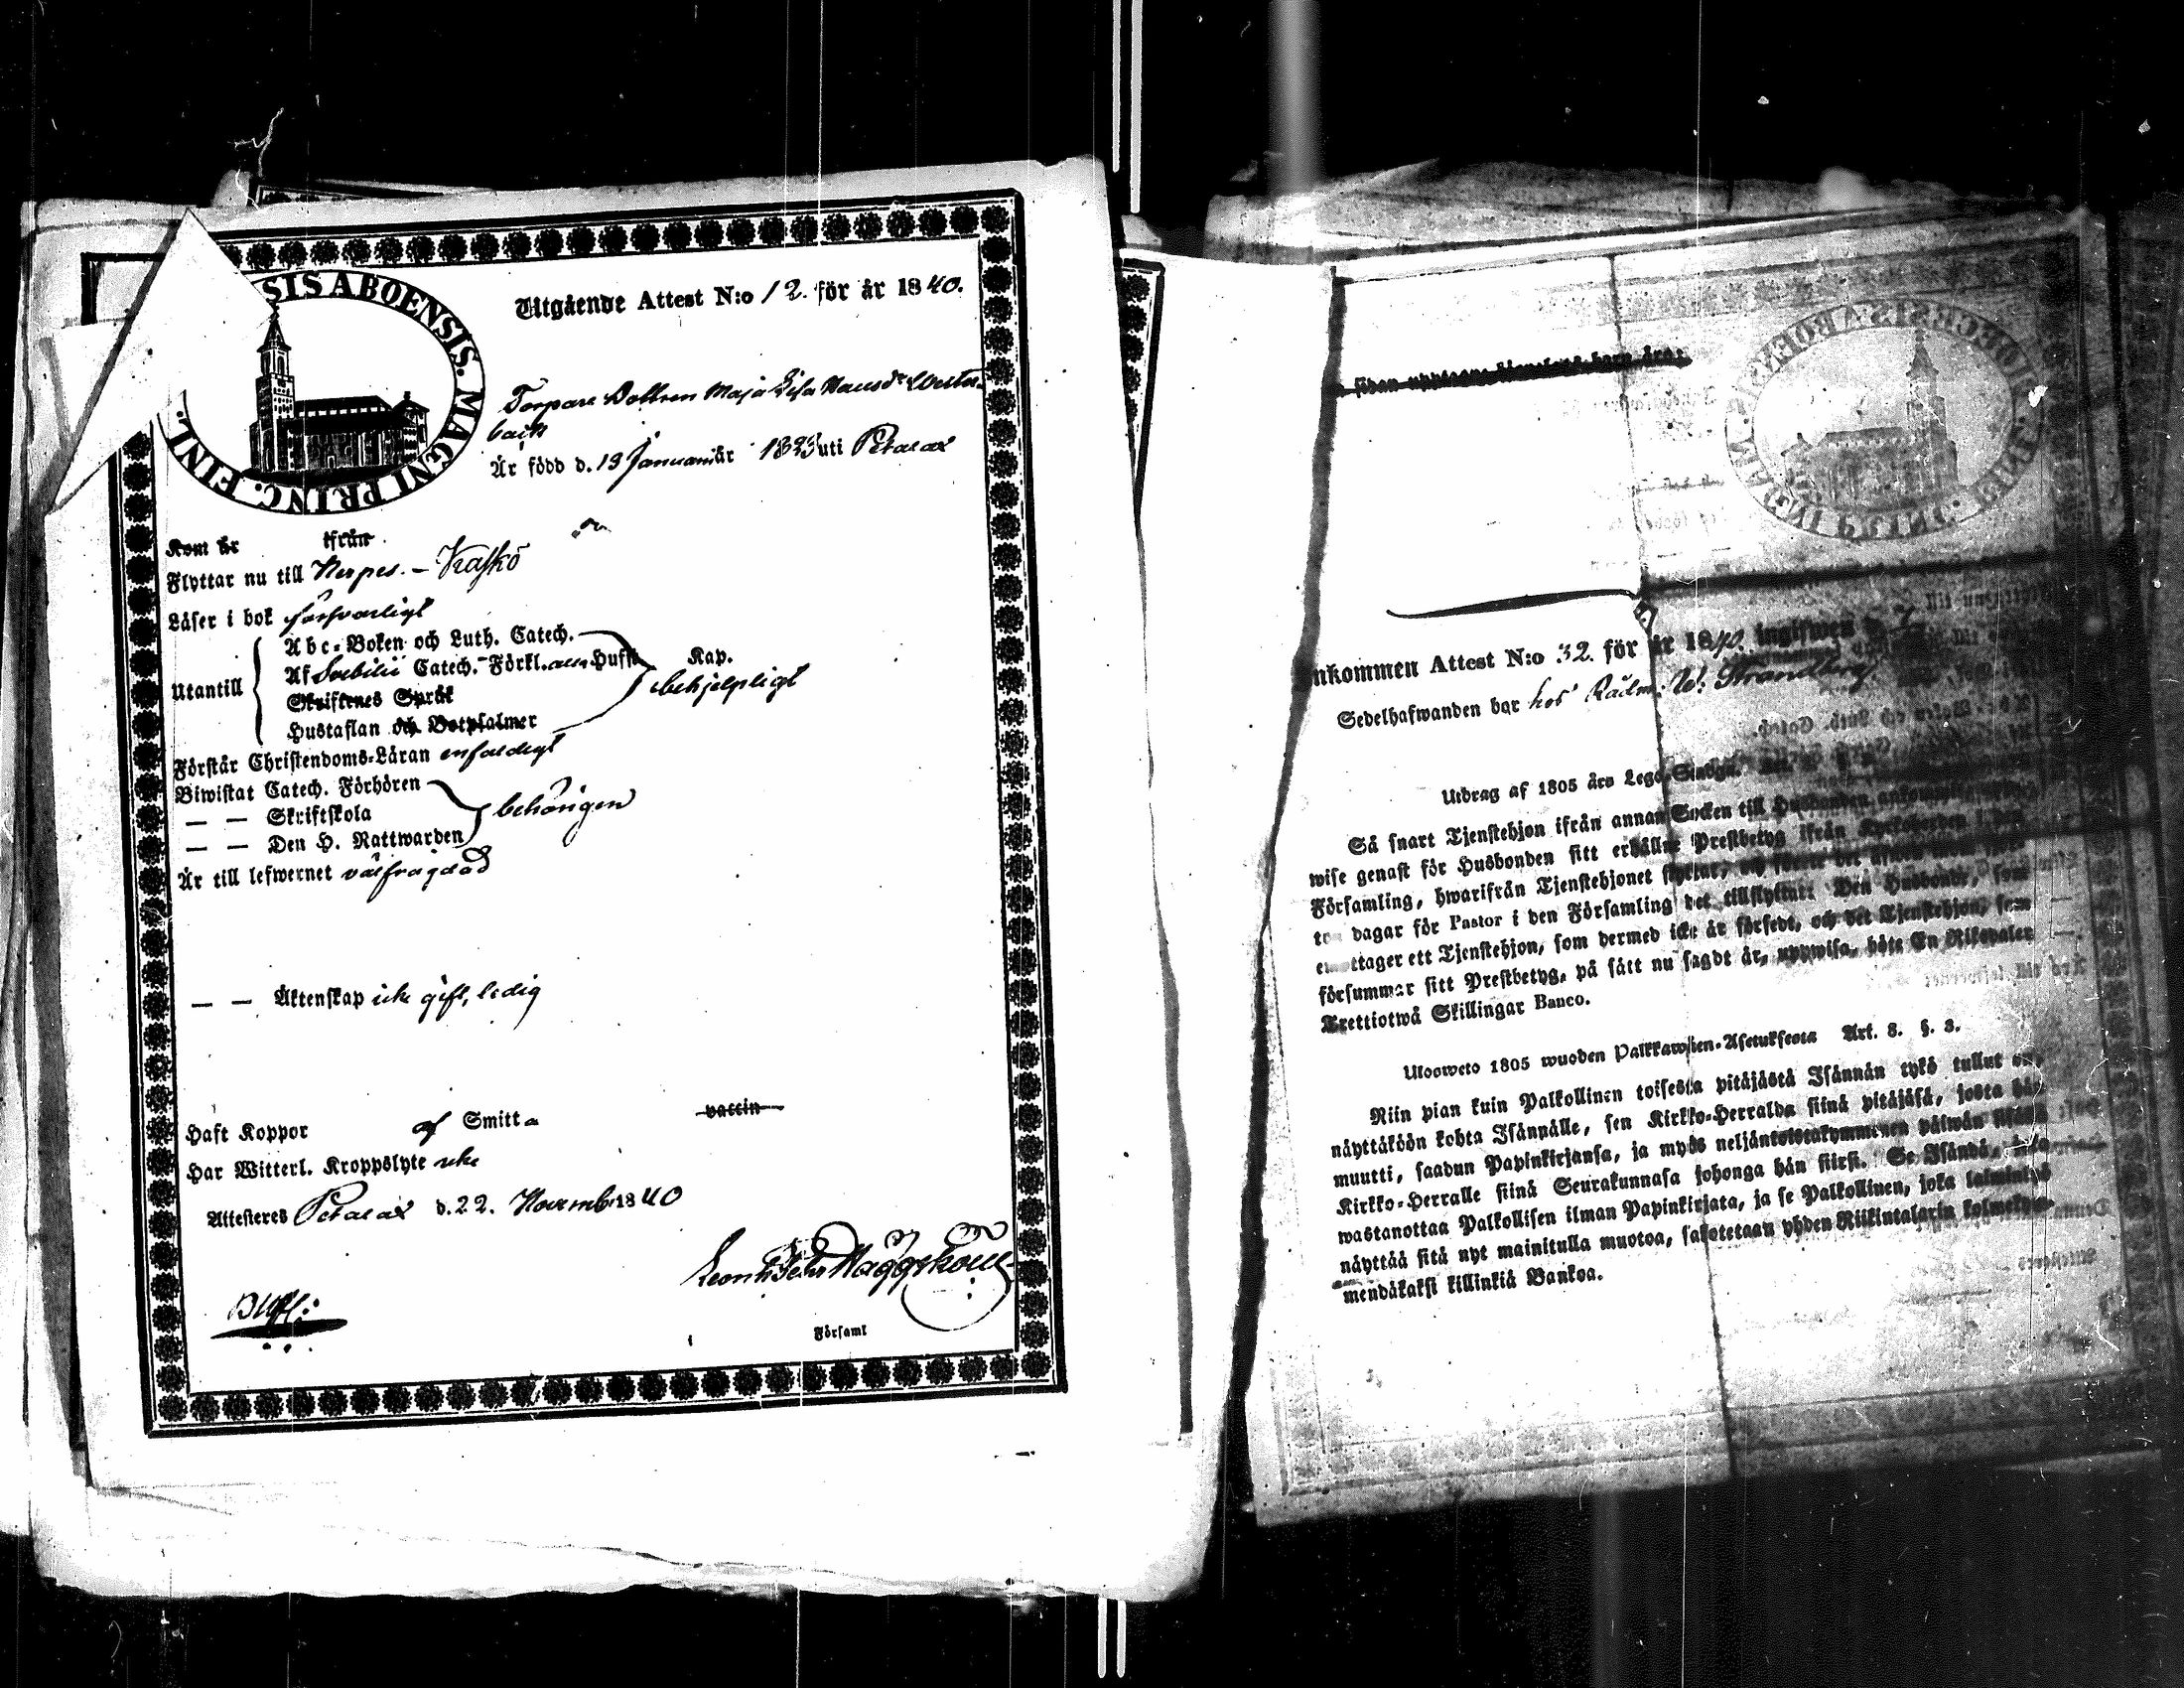 SIS ABOENSIS. MAGNI PRINC. FINL.
Utgående Attest N:o 12. för år 1840.
Torpare Dottren Maja Lisa Hansdr Wester-
back
Är född d. 19 Januari år 1823 uti Petalax
Kom år ifrån
Flyttar nu till Nerpes. – Kaskö
Läser i bok försvarligt
Utantill
Abc-Boken och Luth. Catech.
Af Svebilii Catech. Förkl. Kap.
Skriftenes Språk behjelpligt
Hustaflan och Botpsalmer
Förstår Christendoms-Läran enfaldigt
Biwistat Catech. Förhören
— — Skriftskola behörigen
— — Den H. Nattwarden
Är till lefwernet välfrägdad
— — Äktenskap icke gift, ledig
Haft Koppor af Smitta vaccin
Har Witterl. Kroppslyte icke
Attesteres Petalax d. 22. Novemb. 1840
Häggström
Församl
sidan upptagne
nkommen Attest N:o 32. för år 1840.
Sedelhafwanden bor hos Rådm. W. Strandberg
Utdrag af 1805 års Lego-Stadga.
Så snart Tjenstehjon ifrån annan Socken till Husbonden ankommit,
wise genast för Husbonden sitt erhållne Prestbetyg ifrån Kyrkoherden i den
Församling, hwarifrån Tjenstehjonet flyttat, och sedan det
dagar för Pastor i den Församling det tillflyttat. Den Husbonde, som
emottager ett Tjenstehjon, som dermed icke är försedt, och det Tjenstehjon, som
försummar sitt Prestbetyg, på sätt nu sagdt är, uppwisa, böte En Riksdaler
Trettiotwå Skillingar Banco.
Ulosweto 1805 wuoden Palkkawäen-Asetuksesta Art. 8. §. 3.
Niin pian kuin Palkollinen toisesta pitäjästä Isännän tykö tullut on,
näyttäköön kohta Isännälle, sen Kirkko-Herralda siinä pitäjäsä, josta hän
muutti, saadun Papinkirjansa, ja myös neljäntoistakymmenen päiwän
Kirkko-Herralle siinä Seurakunnasa johonga hän siirsi. Se Isändä, joka
wastanottaa Palkollisen ilman Papinkirjata, ja se Palkollinen, joka laimintyö
näyttää sitä nyt mainitulla muotoa, sakotetaan yhden Riikintalarin kolmekym-
mendäkaksi killinkiä Bankoa.